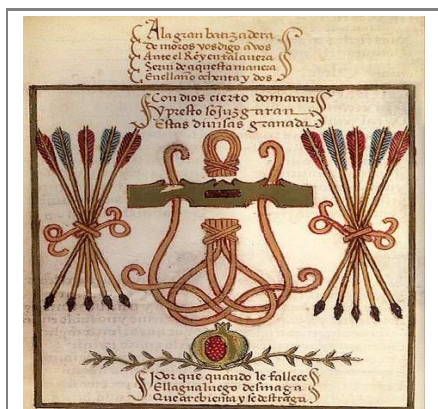 Ala gran batizadera
de moros yos digo avos
Ante el Rey en talauera
Serui de aquesta manera
Enel año ochenta y dos
Con dios cierto domaran
y presto sojuzgaran
Estas diuisas granada
Por que quando le fallece
El lagua luego desmaga
Que arebienta y se destraga